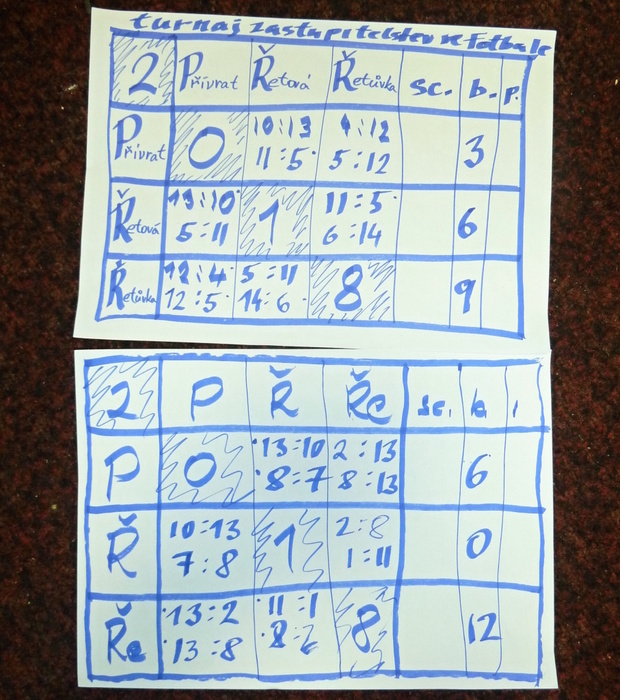 turnaj zastupitelstev ve fotbale
2 Přívrat Řetová Řetůvka sc. b. p.
Přívrat 0 10:13 4:12 3
11:5 5:12
Řetová 13:10 1 11:5 6
5:11 6:14
Řetůvka 12:4 5:11 8 9
12:5 14:6
2 P Ř Ře sc. b.
P 0 13:10 2:13 6
8:7 8:13
Ř 10:13 1 2:8 0
7:8 1:11
Ře 13:2 11:1 8 12
13:8 8:2